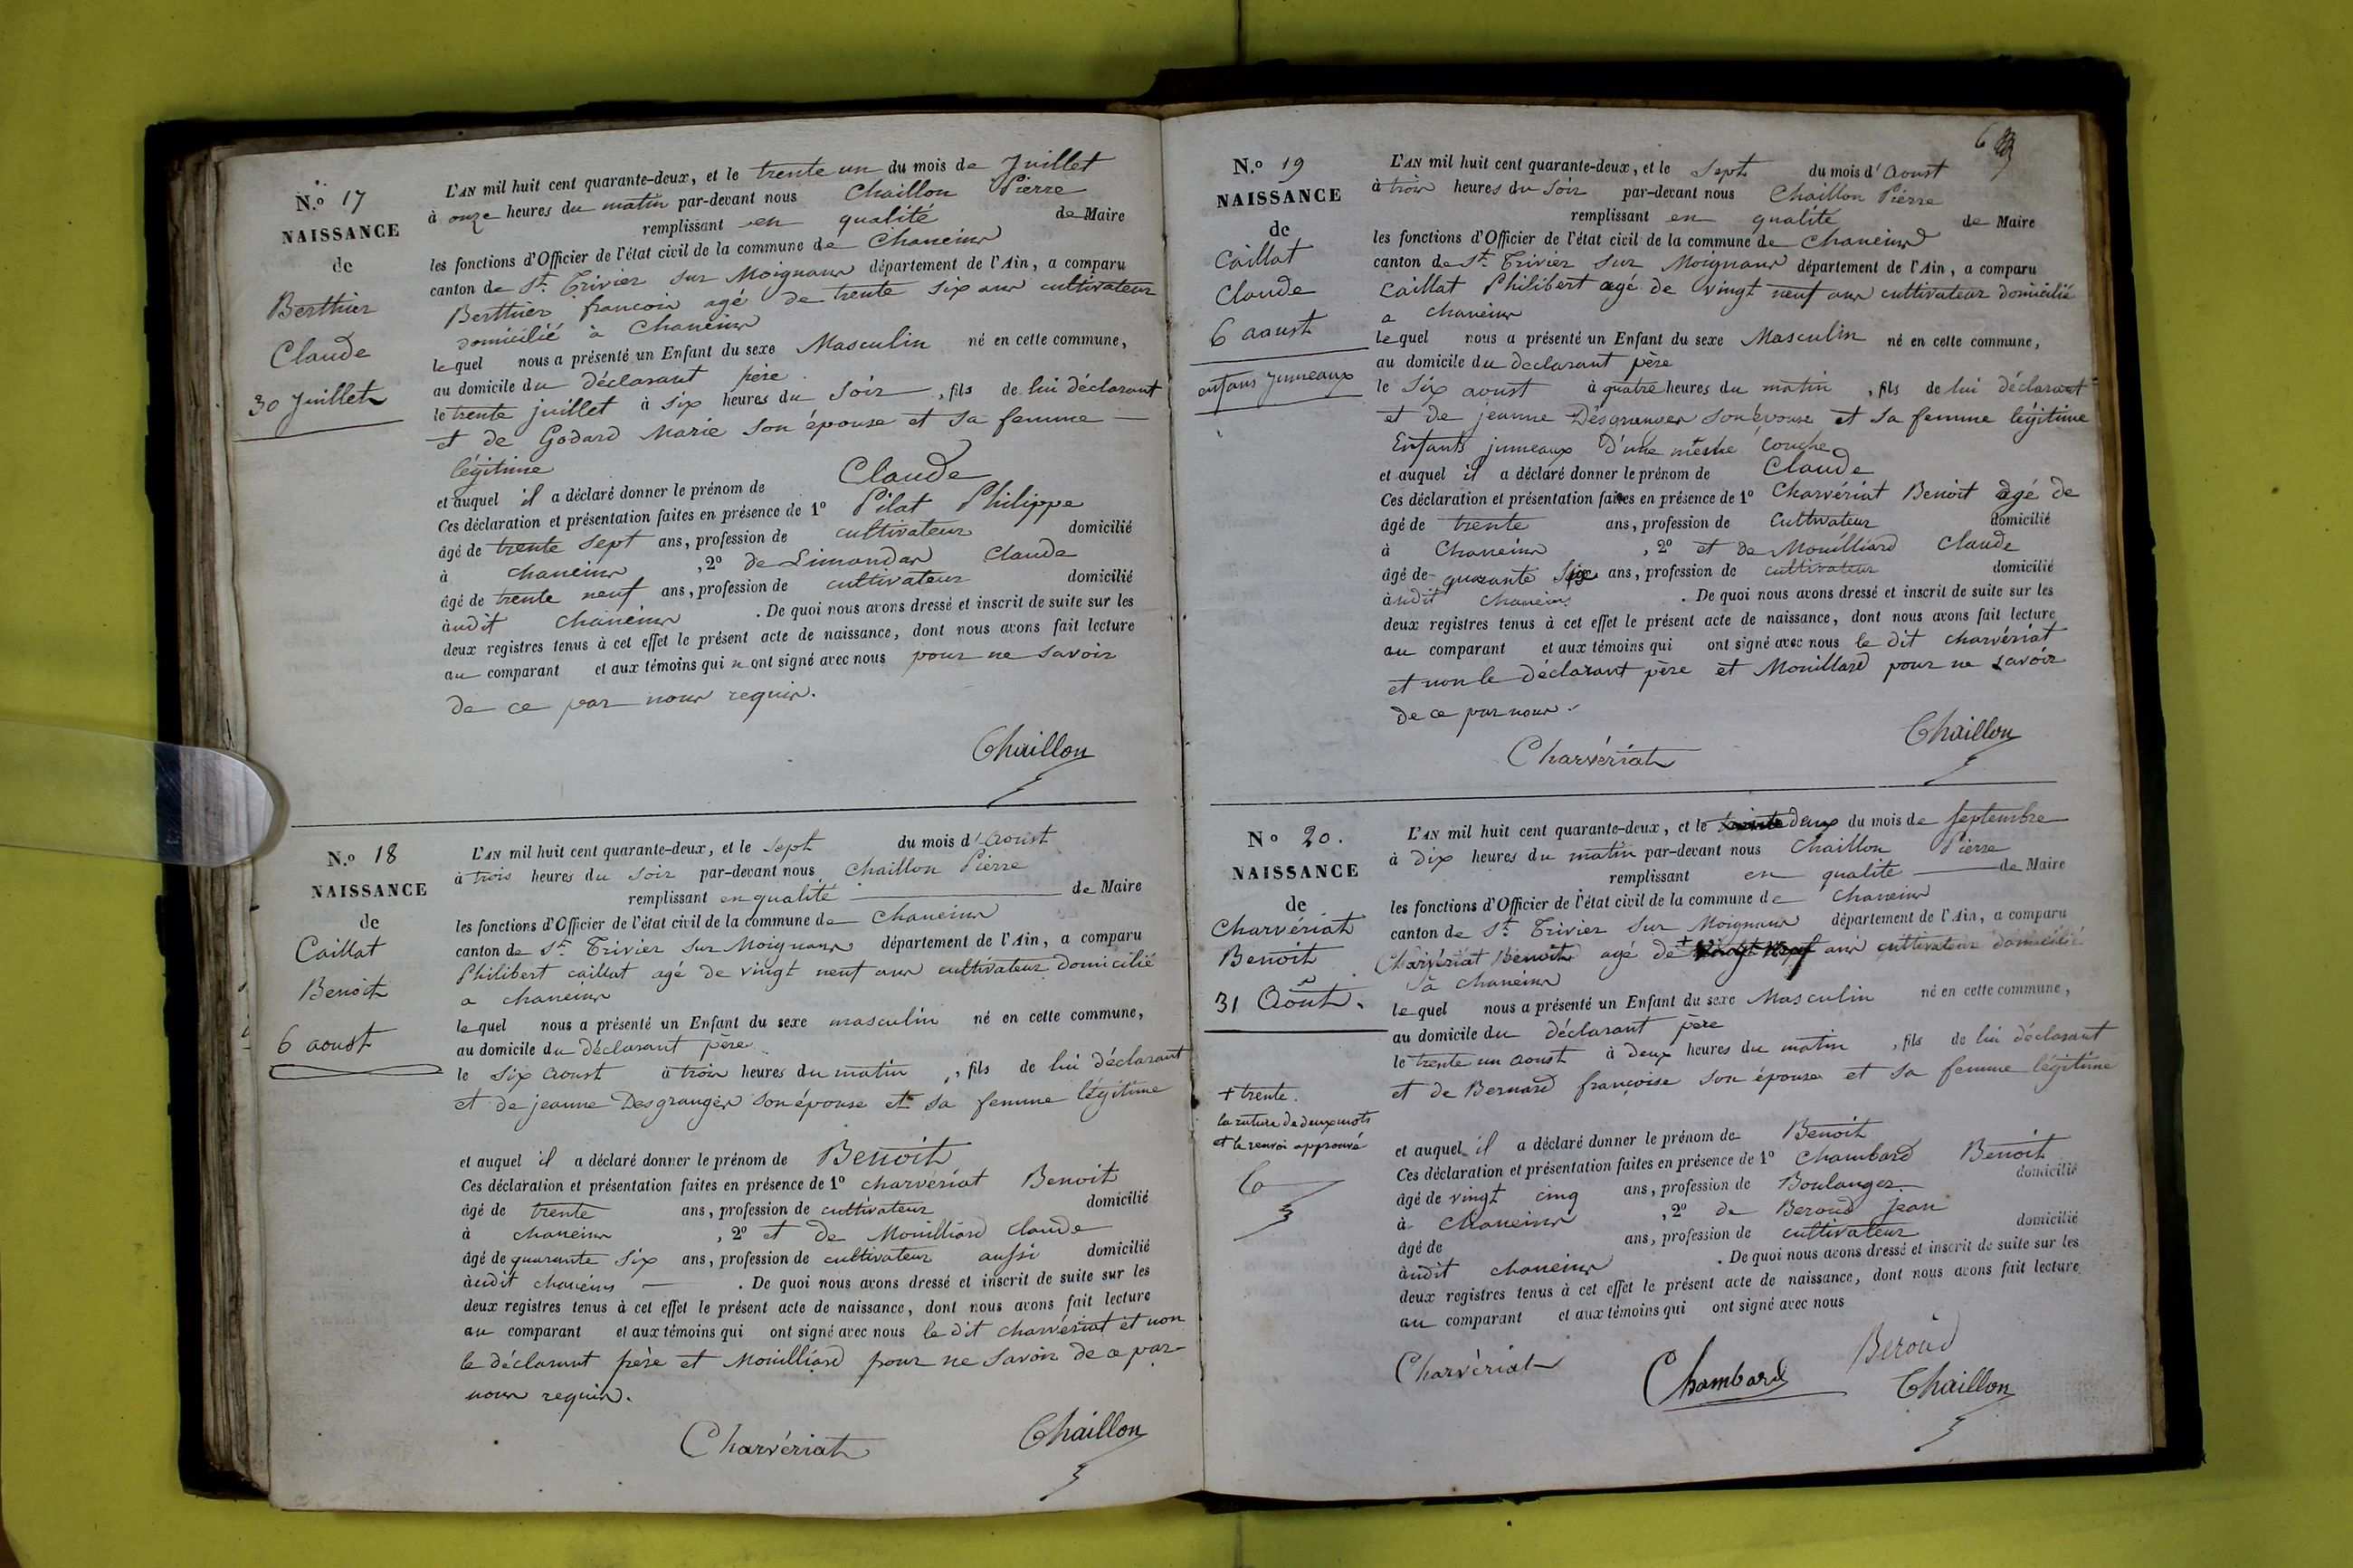 N.o 17
NAISSANCE
de
Berthier
Claude
30 Juillet
L'AN mil huit cent quarante-deux, et le trente un du mois de Juillet
à onze heures du matin par-devant nous Chaillon Pierre
remplissant en qualité de Maire
les fonctions d'Officier de l'état civil de la commune de Chaneins
canton de St. Trivier sur Moignans département de l'Ain, a comparu
Berthier francois agé de trente six ans cultivateur
domicilié à Chaneins
lequel nous a présenté un Enfant du sexe Masculin né en cette commune,
au domicile du déclarant père
le trente juillet à six heures du soir, fils de lui déclarant
et de Godard Marie son épouse et sa femme
légitime
et auquel il a déclaré donner le prénom de Claude
Ces déclaration et présentation faites en présence de 1o Pilat Philippe
âgé de trente sept ans, profession de cultivateur domicilié
à chaneins, 2o de Limandas Claude
âgé de trente neuf ans, profession de cultivateur domicilié
àudit chaneins. De quoi nous avons dressé et inscrit de suite sur les
deux registres tenus à cet effet le présent acte de naissance, dont nous avons fait lecture
au comparant et aux témoins qui n ont signé avec nous pour ne savoir
de ce par nous requis.
Chaillon
N.o 18
NAISSANCE
de
Caillat
Benoit
6 aoust
L'AN mil huit cent quarante-deux, et le sept du mois d'aoust
à trois heures du soir par-devant nous Chaillon Pierre
remplissant en qualité de Maire
les fonctions d'Officier de l'état civil de la commune de Chaneins
canton de St. Trivier sur Moignans département de l'Ain, a comparu
Philibert caillat agé de vingt neuf ans cultivateur domicilié
a chaneins
lequel nous a présenté un Enfant du sexe masculin né en cette commune,
au domicile du déclarant père
le six aoust à trois heures du matin, fils de lui déclarant
et de jeanne Desgranges son épouse et sa femme légitime
et auquel il a déclaré donner le prénom de Benoit
Ces déclaration et présentation faites en présence de 1o charvériat Benoit
âgé de trente ans, profession de cultivateur domicilié
à chaneins, 2o et de Mouilliard claude
âgé de quarante six ans, profession de cultivateur aussi domicilié
àudit chaneins. De quoi nous avons dressé et inscrit de suite sur les
deux registres tenus à cet effet le présent acte de naissance, dont nous avons fait lecture
au comparant et aux témoins qui ont signé avec nous le dit charvériat et non
le déclarant père et Mouilliard pour ne savoir de ce par
nous requis.
Charvériat Chaillon
6
N.o 19
NAISSANCE
de
Caillat
Claude
6 aoust
enfans jumeaux
L'AN mil huit cent quarante-deux, et le sept du mois d'aoust
à trois heures du soir par-devant nous Chaillon Pierre
remplissant en qualité de Maire
les fonctions d'Officier de l'état civil de la commune de Chaneins
canton de St. Trivier sur Moignans département de l'Ain, a comparu
Caillat Philibert agé de vingt neuf ans cultivateur domicilié
a chaneins
lequel nous a présenté un Enfant du sexe Masculin né en cette commune,
au domicile du declarant père
le six aoust à quatre heures du matin, fils de lui déclarant
et de jeanne son épouse et sa femme légitime
Enfants jumeaux d'une même couche
et auquel il a déclaré donner le prénom de Claude
Ces déclaration et présentation faites en présence de 1o Charvériat Benoit agé de
âgé de trente ans, profession de cultivateur domicilié
à Chaneins, 2o et de Mouilliard Claude
âgé de quarante six ans, profession de cultivateur domicilié
àudit chaneins. De quoi nous avons dressé et inscrit de suite sur les
deux registres tenus à cet effet le présent acte de naissance, dont nous avons fait lecture
au comparant et aux témoins qui ont signé avec nous le dit charvériat
et non le déclarant père et Mouillard pour ne savoir
de ce par nous.
Charvériat Chaillon
No 20.
NAISSANCE
de
Charvériat
Benoit
31 Août.
+ trente.
la rature de deux mots
et le renvoi approuvé
L'AN mil huit cent quarante-deux, et le deux du mois de Septembre
à dix heures du matin par-devant nous Chaillon Pierre
remplissant en qualité de Maire
les fonctions d'Officier de l'état civil de la commune de Chaneins
canton de St. Trivier sur Moignans département de l'Ain, a comparu
Charvériat Benoit agé de + vingt neuf ans cultivateur domicilié
à chaneins
lequel nous a présenté un Enfant du sexe Masculin né en cette commune,
au domicile du déclarant père
le trente un aoust à deux heures du matin, fils de lui déclarant
et de Bernard françoise son épouse et sa femme légitime
et auquel il a déclaré donner le prénom de Benoit
Ces déclaration et présentation faites en présence de 1o Chambard Benoit
âgé de vingt cinq ans, profession de Boulanger domicilié
à Chaneins, 2o de Beroud Jean
âgé de ans, profession de cultivateur domicilié
àudit chaneins. De quoi nous avons dressé et inscrit de suite sur les
deux registres tenus à cet effet le présent acte de naissance, dont nous avons fait lecture
au comparant et aux témoins qui ont signé avec nous
Charvériat Chambard Beroud
Chaillon